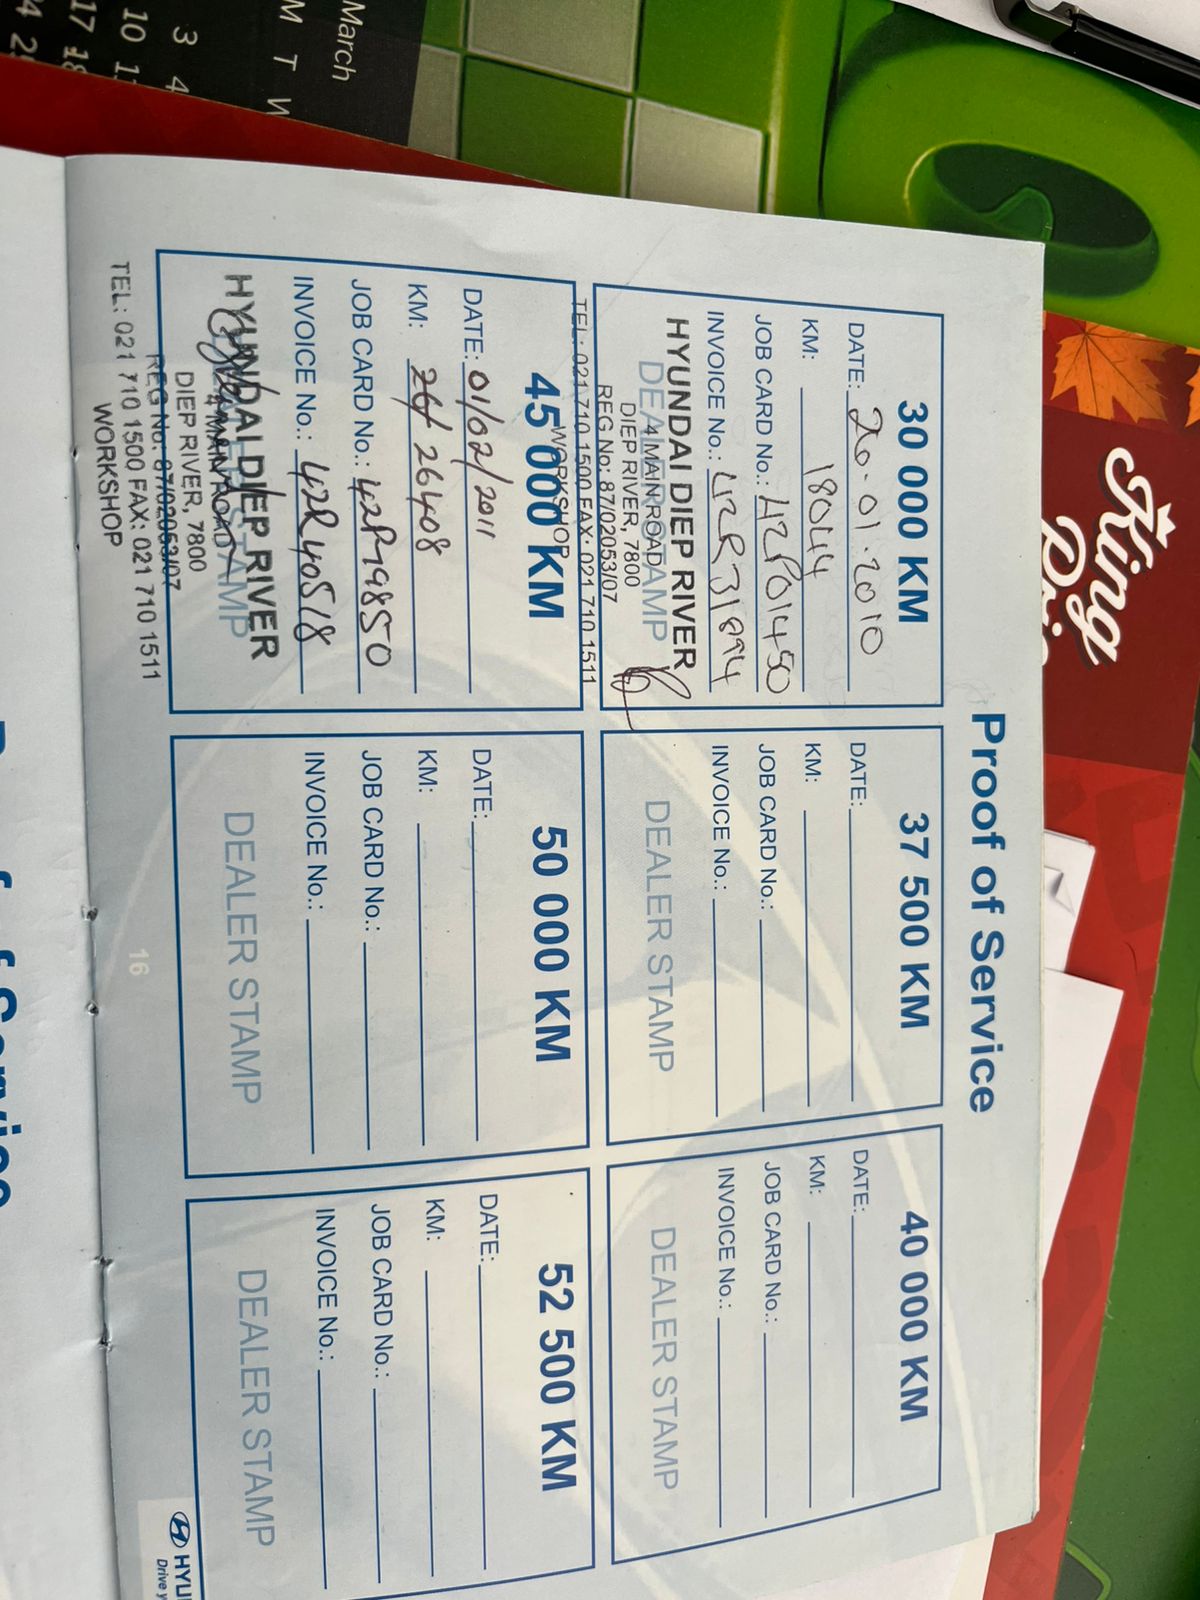 March
M T W
3 4
10 11
17 18
King
Proof of Service
30 000 KM
DATE: 20.01.2010
KM: 18044
JOB CARD No.: 42P01450
INVOICE No.: 42R31894
DEALER STAMP
HYUNDAI DIEP RIVER
4 MAIN ROAD
DIEP RIVER, 7800
REG No: 87/02053/07
TEL: 021 710 1500 FAX: 021 710 1511
WORKSHOP
37 500 KM
DATE:
KM:
JOB CARD No.:
INVOICE No.:
DEALER STAMP
40 000 KM
DATE:
KM:
JOB CARD No.:
INVOICE No.:
DEALER STAMP
45 000 KM
DATE: 01/02/2011
KM: 26/ 26408
JOB CARD No.: 42P79850
INVOICE No.: 42R40518
DEALER STAMP
HYUNDAI DIEP RIVER
4 MAIN ROAD
DIEP RIVER, 7800
REG No: 87/02053/07
TEL: 021 710 1500 FAX: 021 710 1511
WORKSHOP
50 000 KM
DATE:
KM:
JOB CARD No.:
INVOICE No.:
DEALER STAMP
52 500 KM
DATE:
KM:
JOB CARD No.:
INVOICE No.:
DEALER STAMP
16
Drive